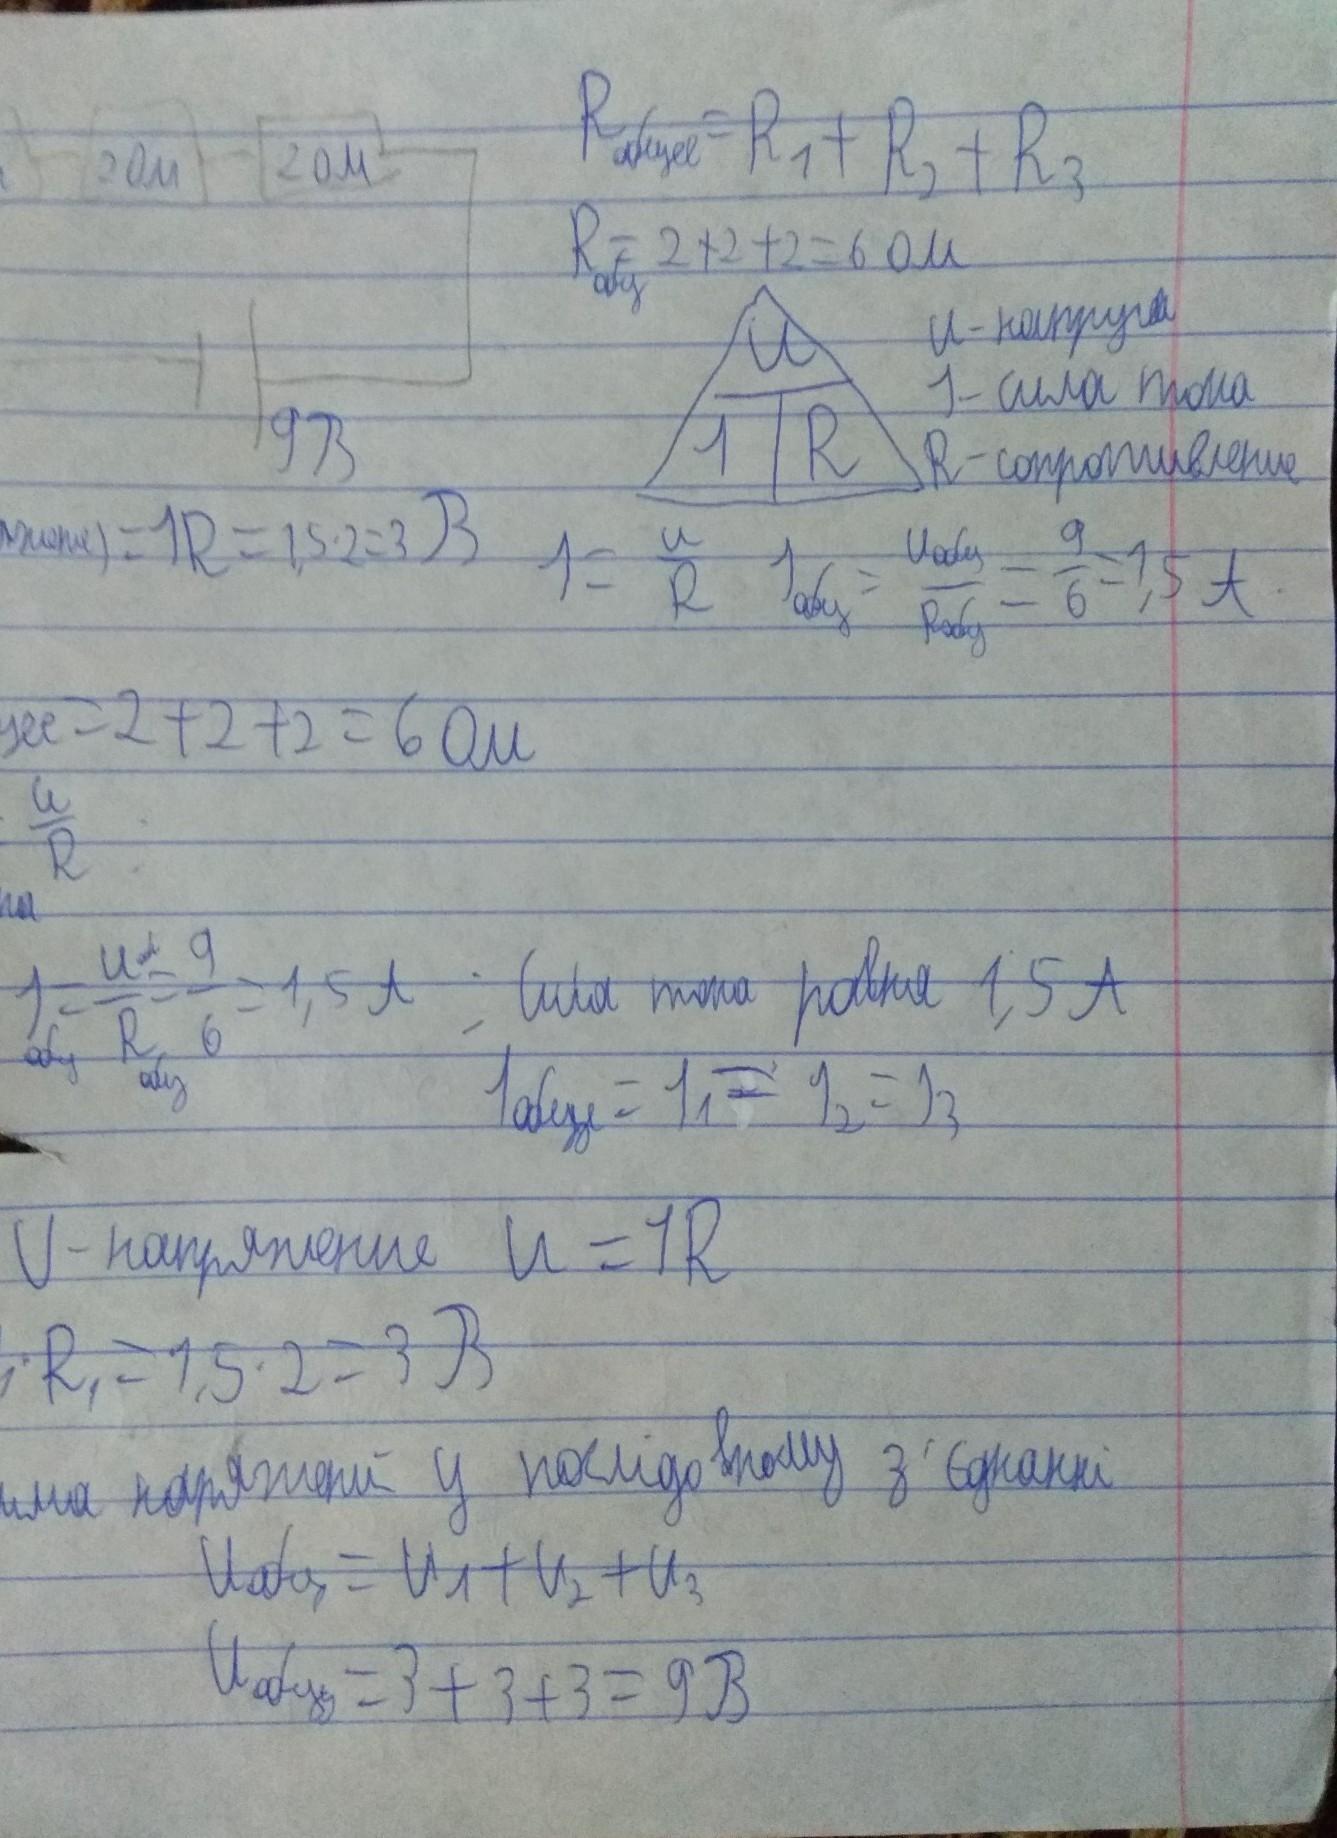 R общее = R1 + R2 + R3
2 Ом 2 Ом
Rобщ = 2+2+2=6 Ом
U
1 R
U - напруга
1 - сила тока
R - сопротивление
9В
=1R=1,5·2=3В
1 = U/R 1общ = Uобщ/Rобщ = 9/6 = 1,5 А
=2+2+2=6 Ом
U/R
1общ = U/Rобщ = 9/6 = 1,5 А ; Сила тока равна 1,5 А
1общ = 11 = 12 = 13
U - напряжение U = 1R
· R1 = 1,5·2 = 3 В
напряжений у послідовному з'єднанні
Uобщ = U1 + U2 + U3
Uобщ = 3+3+3=9В